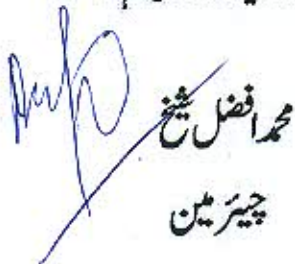 محمد افضل شیخ
چیئرمین